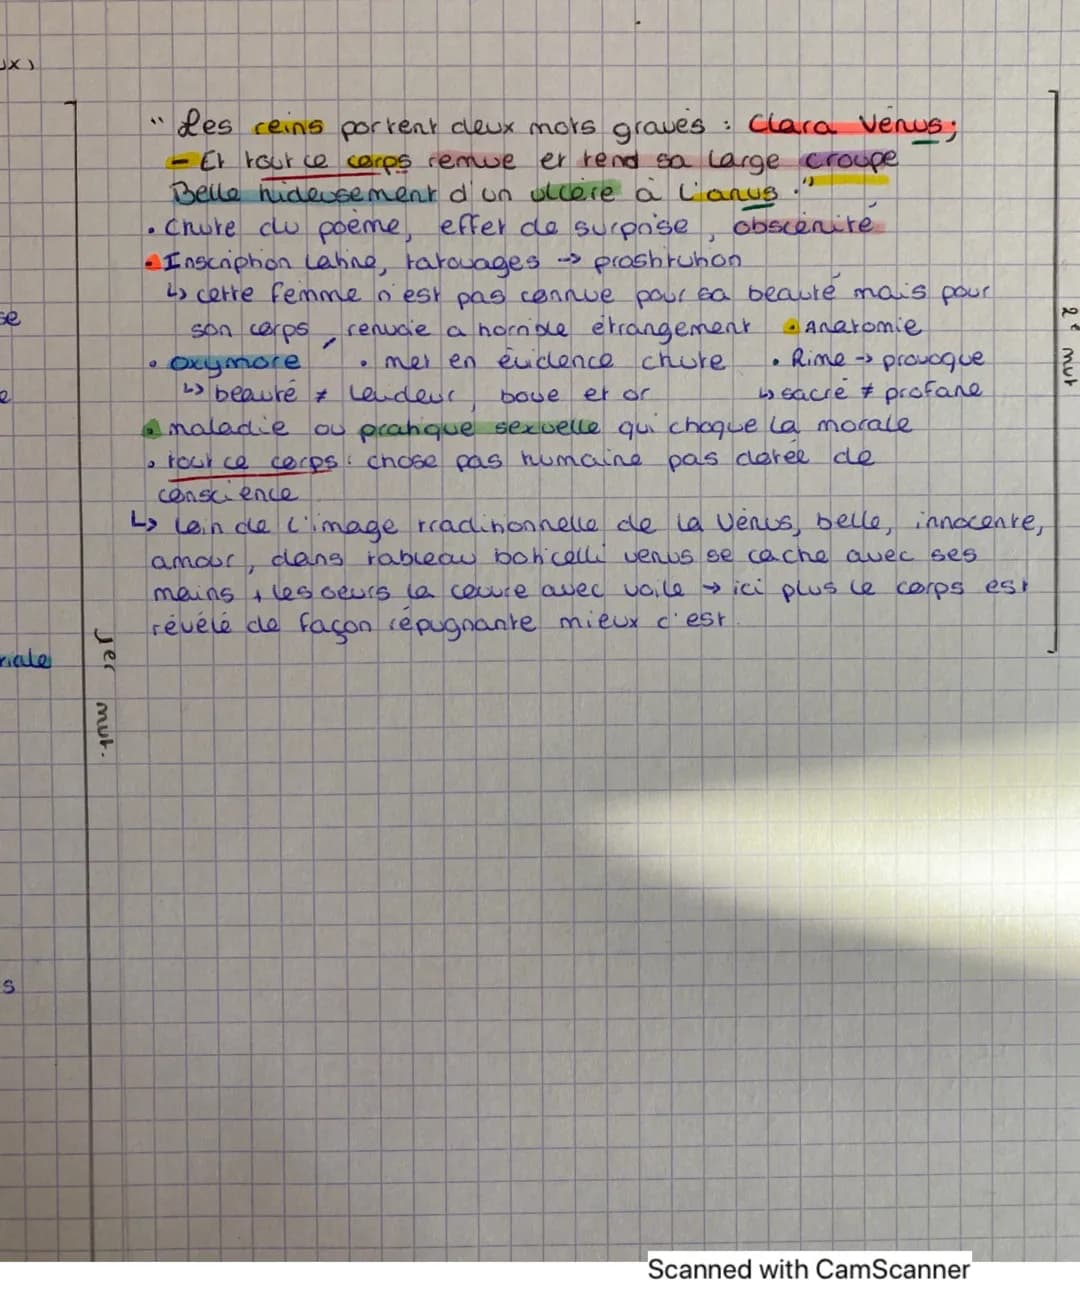 ux)
" Les reins portent deux mots gravés : Clara Vénus;
- Et tout ce corps remue et tend sa large croupe
Belle hideusement d'un ulcère à l'anus."
• Chute du poème, effet de surprise, obscénité
• Inscription latine, tatouages -> prostitution
↳ cette femme n'est pas connue pour sa beauté mais pour
se
son corps, renvoie a horrible étrangement • Anatomie
• oxymore • met en évidence chute • Rime -> provoque
e
↳ beauté ≠ laideur, boue et or ↳ sacré ≠ profane
• maladie ou pratique sexuelle qui choque la morale
• tout ce corps : chose pas humaine pas dotée de
conscience
↳ loin de l'image traditionnelle de la Vénus, belle, innocente,
amour, dans tableau boticelli venus se cache avec ses
mains + les oeurs la couvre avec voile → ici plus le corps est
révélé de façon répugnante mieux c'est.
riale
1er mvt.
2e mvt
s
Scanned with CamScanner